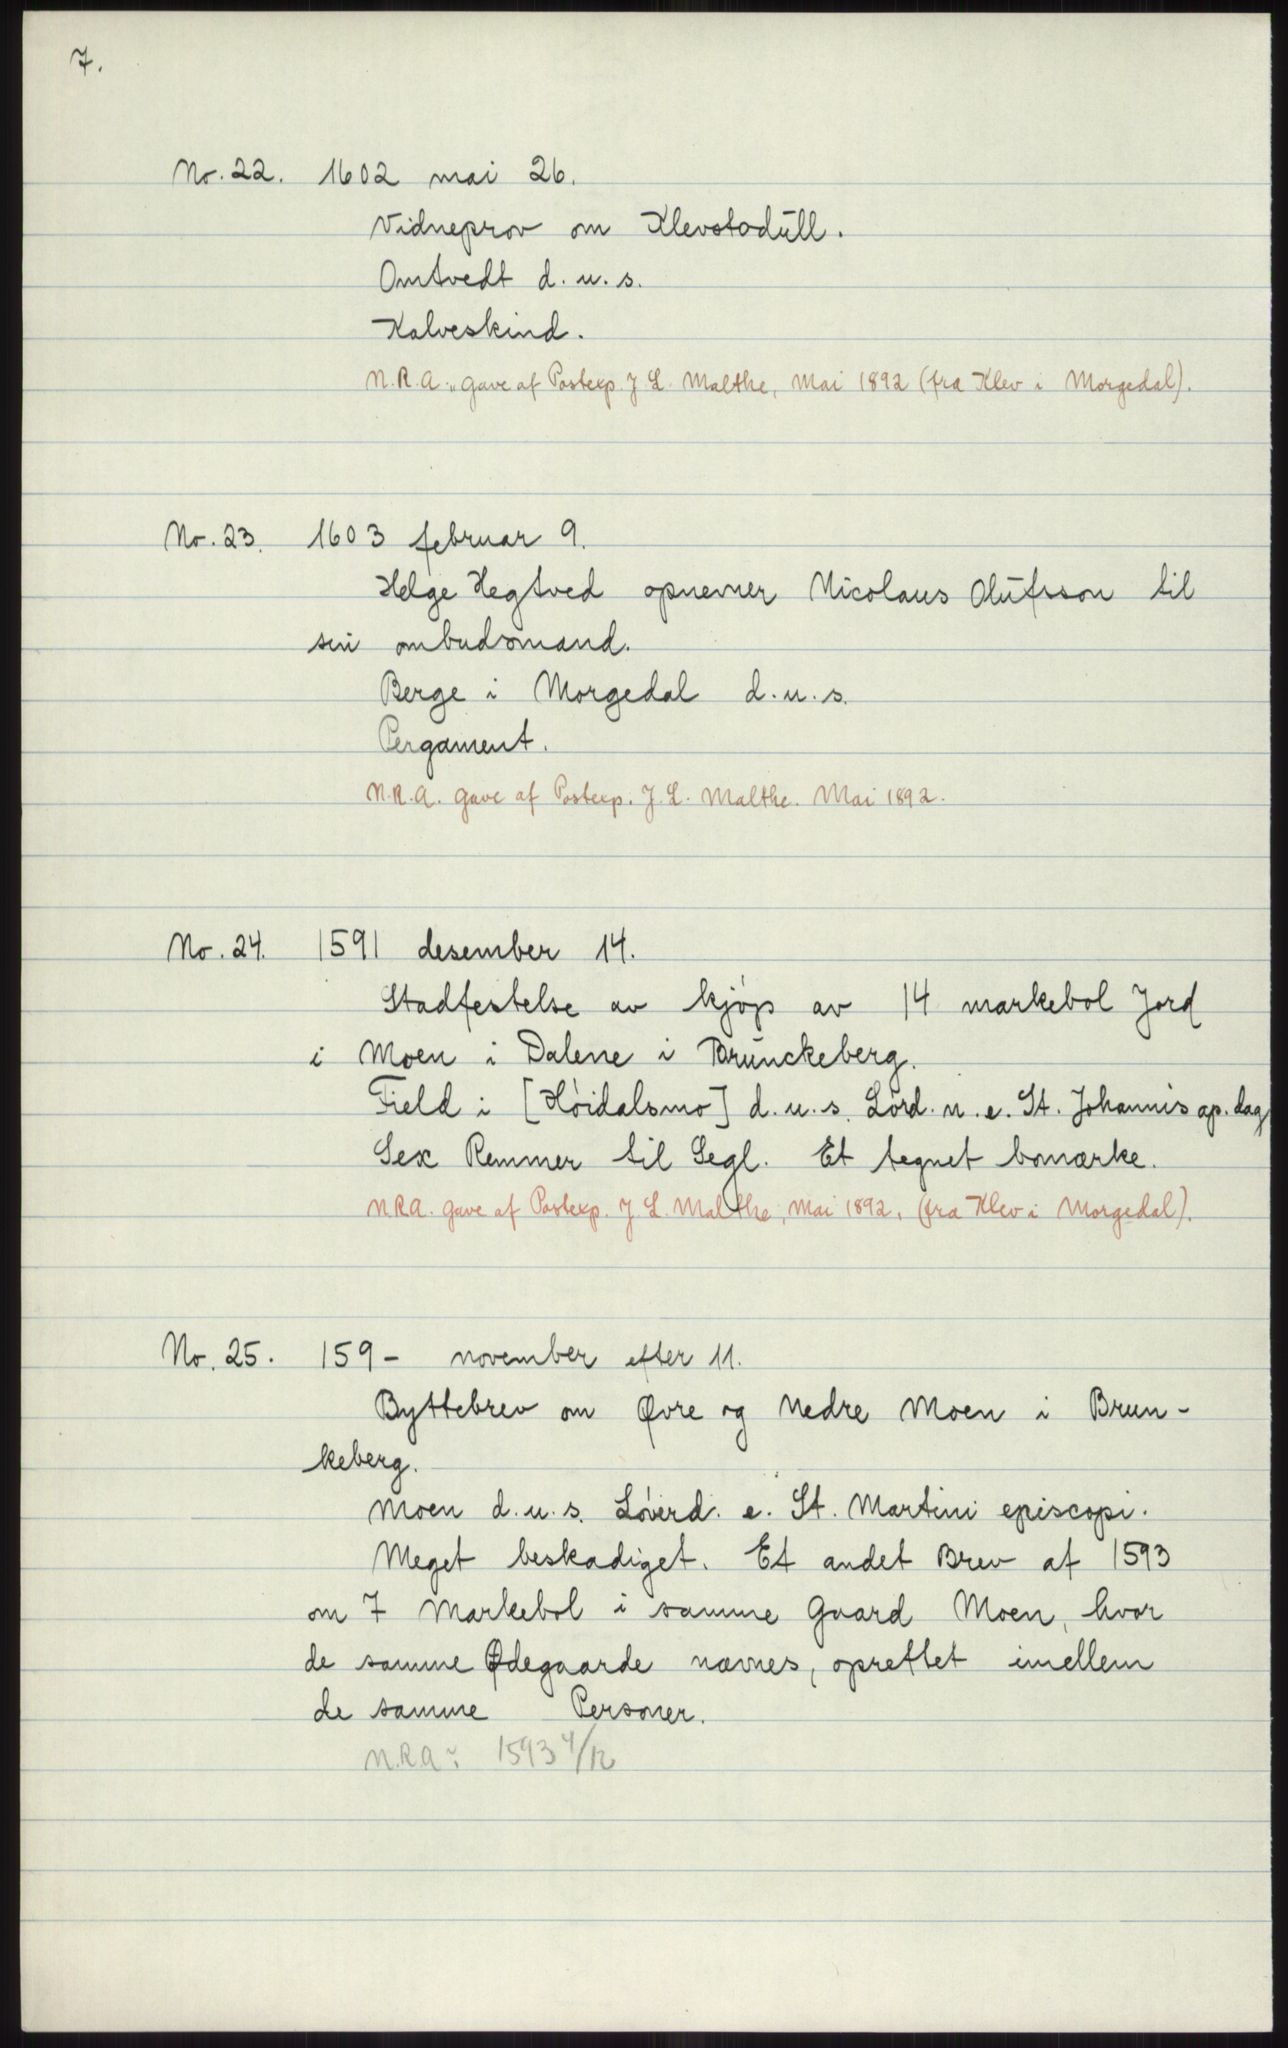 7.
No. 22. 1602 mai 26.
Vidneprov om Klevstodŭll.
Omtvedt d. u. s.
Kalveskind.
N.R.A. „ gave af Postexp. J. L. Malthe, Mai 1892 (fra Klev i Morgedal).
No. 23. 1603 februar 9.
Helge Hegtved opnevner Nicolaus Olŭfsson til
sin ombudsmand.
Berge i Morgedal d. u. s.
Pergament.
N.R.A. gave af Postexp. J. L. Malthe. Mai 1892.
No. 24. 1591 desember 14.
Stadfestelse av kjóp av 14 markebol Jord
i Moen i Dalene i Brŭnckeberg.
Field i [Hóidalsmo] d. u. s. Lórd. n. e. St. Johannis ap. dag
Sex Remmer til Segl. Et tegnet bomærke.
N.R.A. gave af Postexp. J. L. Malthe, Mai 1892. (fra Klev i Morgedal).
No. 25. 159- november efter 11.
Byttebrev om Øvre og Nedre Moen i Brun-
keberg.
Moen d. u. s. Lóverd. e. St. Martini episcopi.
Meget beskadiget. Et andet Brev af 1593
om 7 Markebol i samme Gaard Moen, hvor
de samme Ødegaarde nævnes, oprettet imellem
de samme Personer.
N.R.A: 1593 4/12